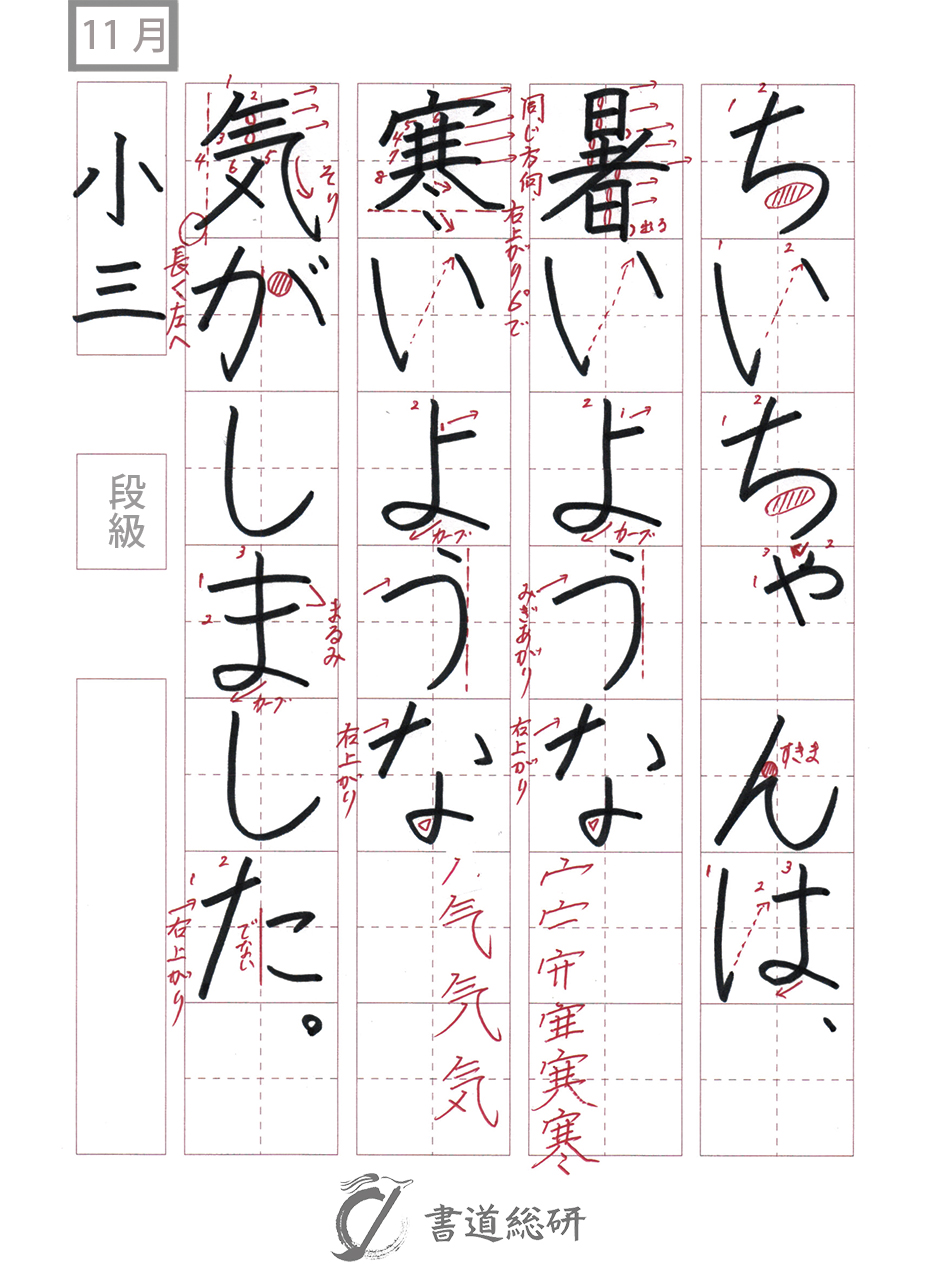 11月
ちいちゃんは、
暑いような
寒いような
気がしました。
小三
段級
同じ方向・右上がり6°で
つむろ
そり
長く左へ
カーブ
カーブ
みぎあがり
まるみ
カーブ
右上がり
右上がり
すきま
でない
右上がり
気気気
寒寒
書道総研